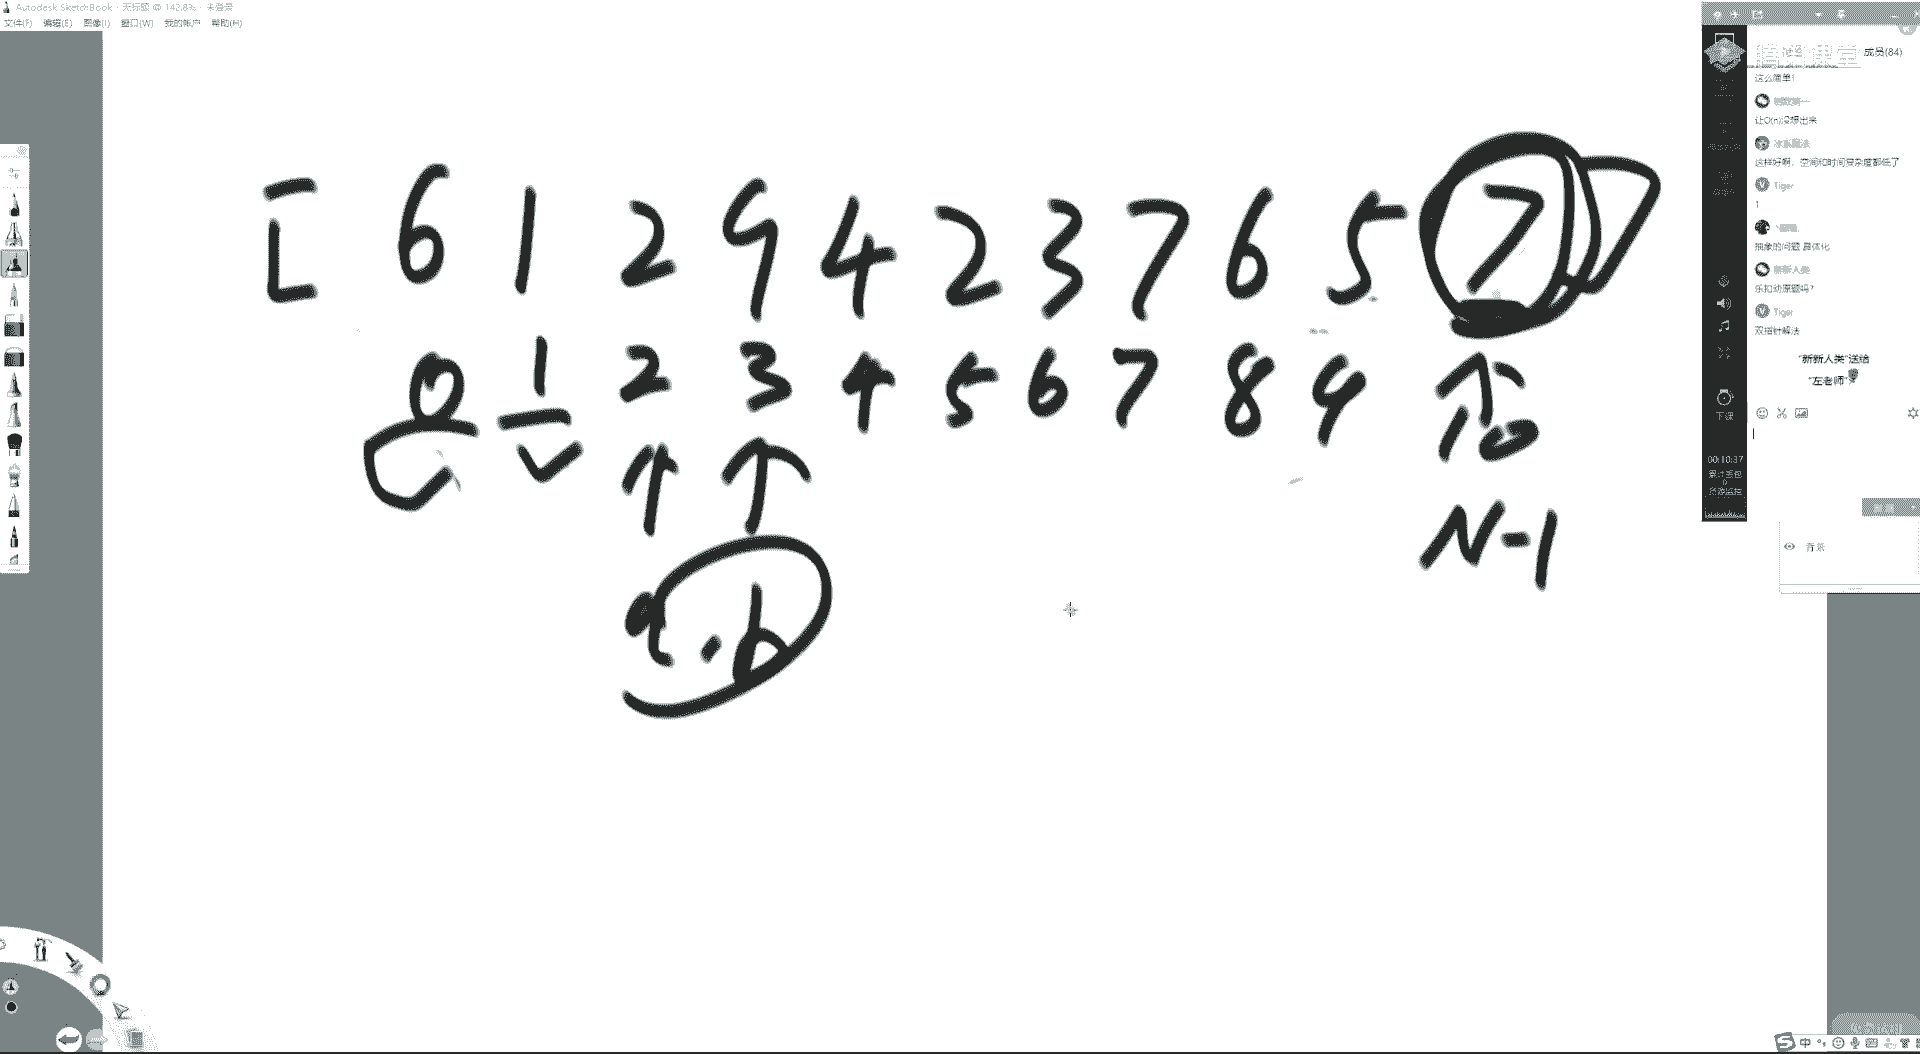 Autodesk SketchBook - 无标题 @ 142.8% - 未登录
文件(F) 编辑(E) 图像(I) 窗口(W) 我的帐户 帮助(H)
[ 6 1 2 9 4 2 3 7 6 5 7 ]
0 1 2 3 4 5 6 7 8 9 10
N-1
a.b
腾讯课堂 成员(84)
这么简单!
让O(n)没想出来
这样好啊,空间和时间复杂度都低了
Tiger
1
抽象的问题 具体化
新新人类
乐扣幼原题吗?
Tiger
双指针解法
"新新人类"送给
"左老师"
下课
00:10:37
累计丢包
0
资源监控
背景
中